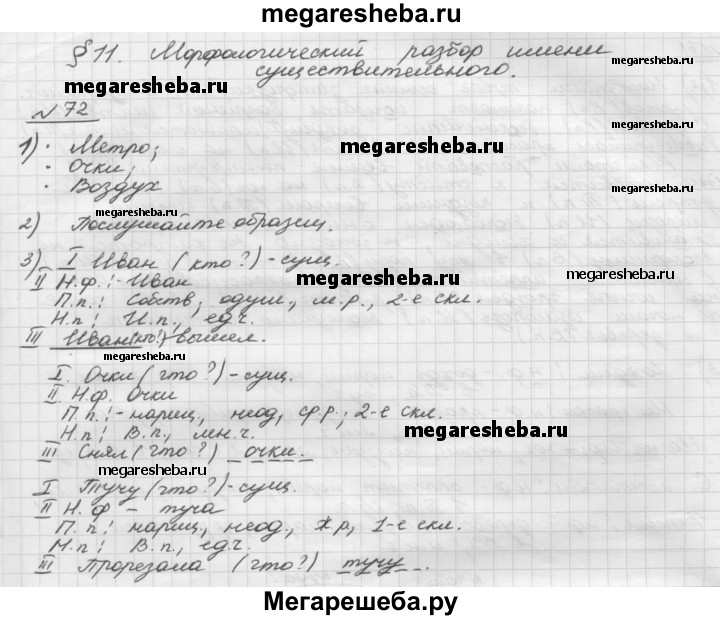 megaresheba.ru
§ 11. Морфологический разбор имени
существительного.
megaresheba.ru
№ 72
1) · Метро;
megaresheba.ru
· Очки;
· Воздух
megaresheba.ru
2) Послушайте образец.
3) I Иван (кто?) - сущ.
megaresheba.ru
megaresheba.ru
II Н.ф.: - Иван
П.п.: Собств, одуш., м.р., 2-е скл.
Н.п: И.п., ед.ч.
III Иван (кто?) вышел.
megaresheba.ru
I. Очки (что?) - сущ.
II Н.ф. Очки
П.п.: - нариц, неод, ср.р.; 2-е скл.
Н.п: В.п., мн.ч.
megaresheba.ru
III Снял (что?) очки.
megaresheba.ru
I Тучу (что?) - сущ.
II Н.ф - туча
П.п: нариц., неод., ж.р, 1-е скл.
М.п: В.п., ед.ч.
III Прорезала (что?) тучу.
Мегарешеба.ру